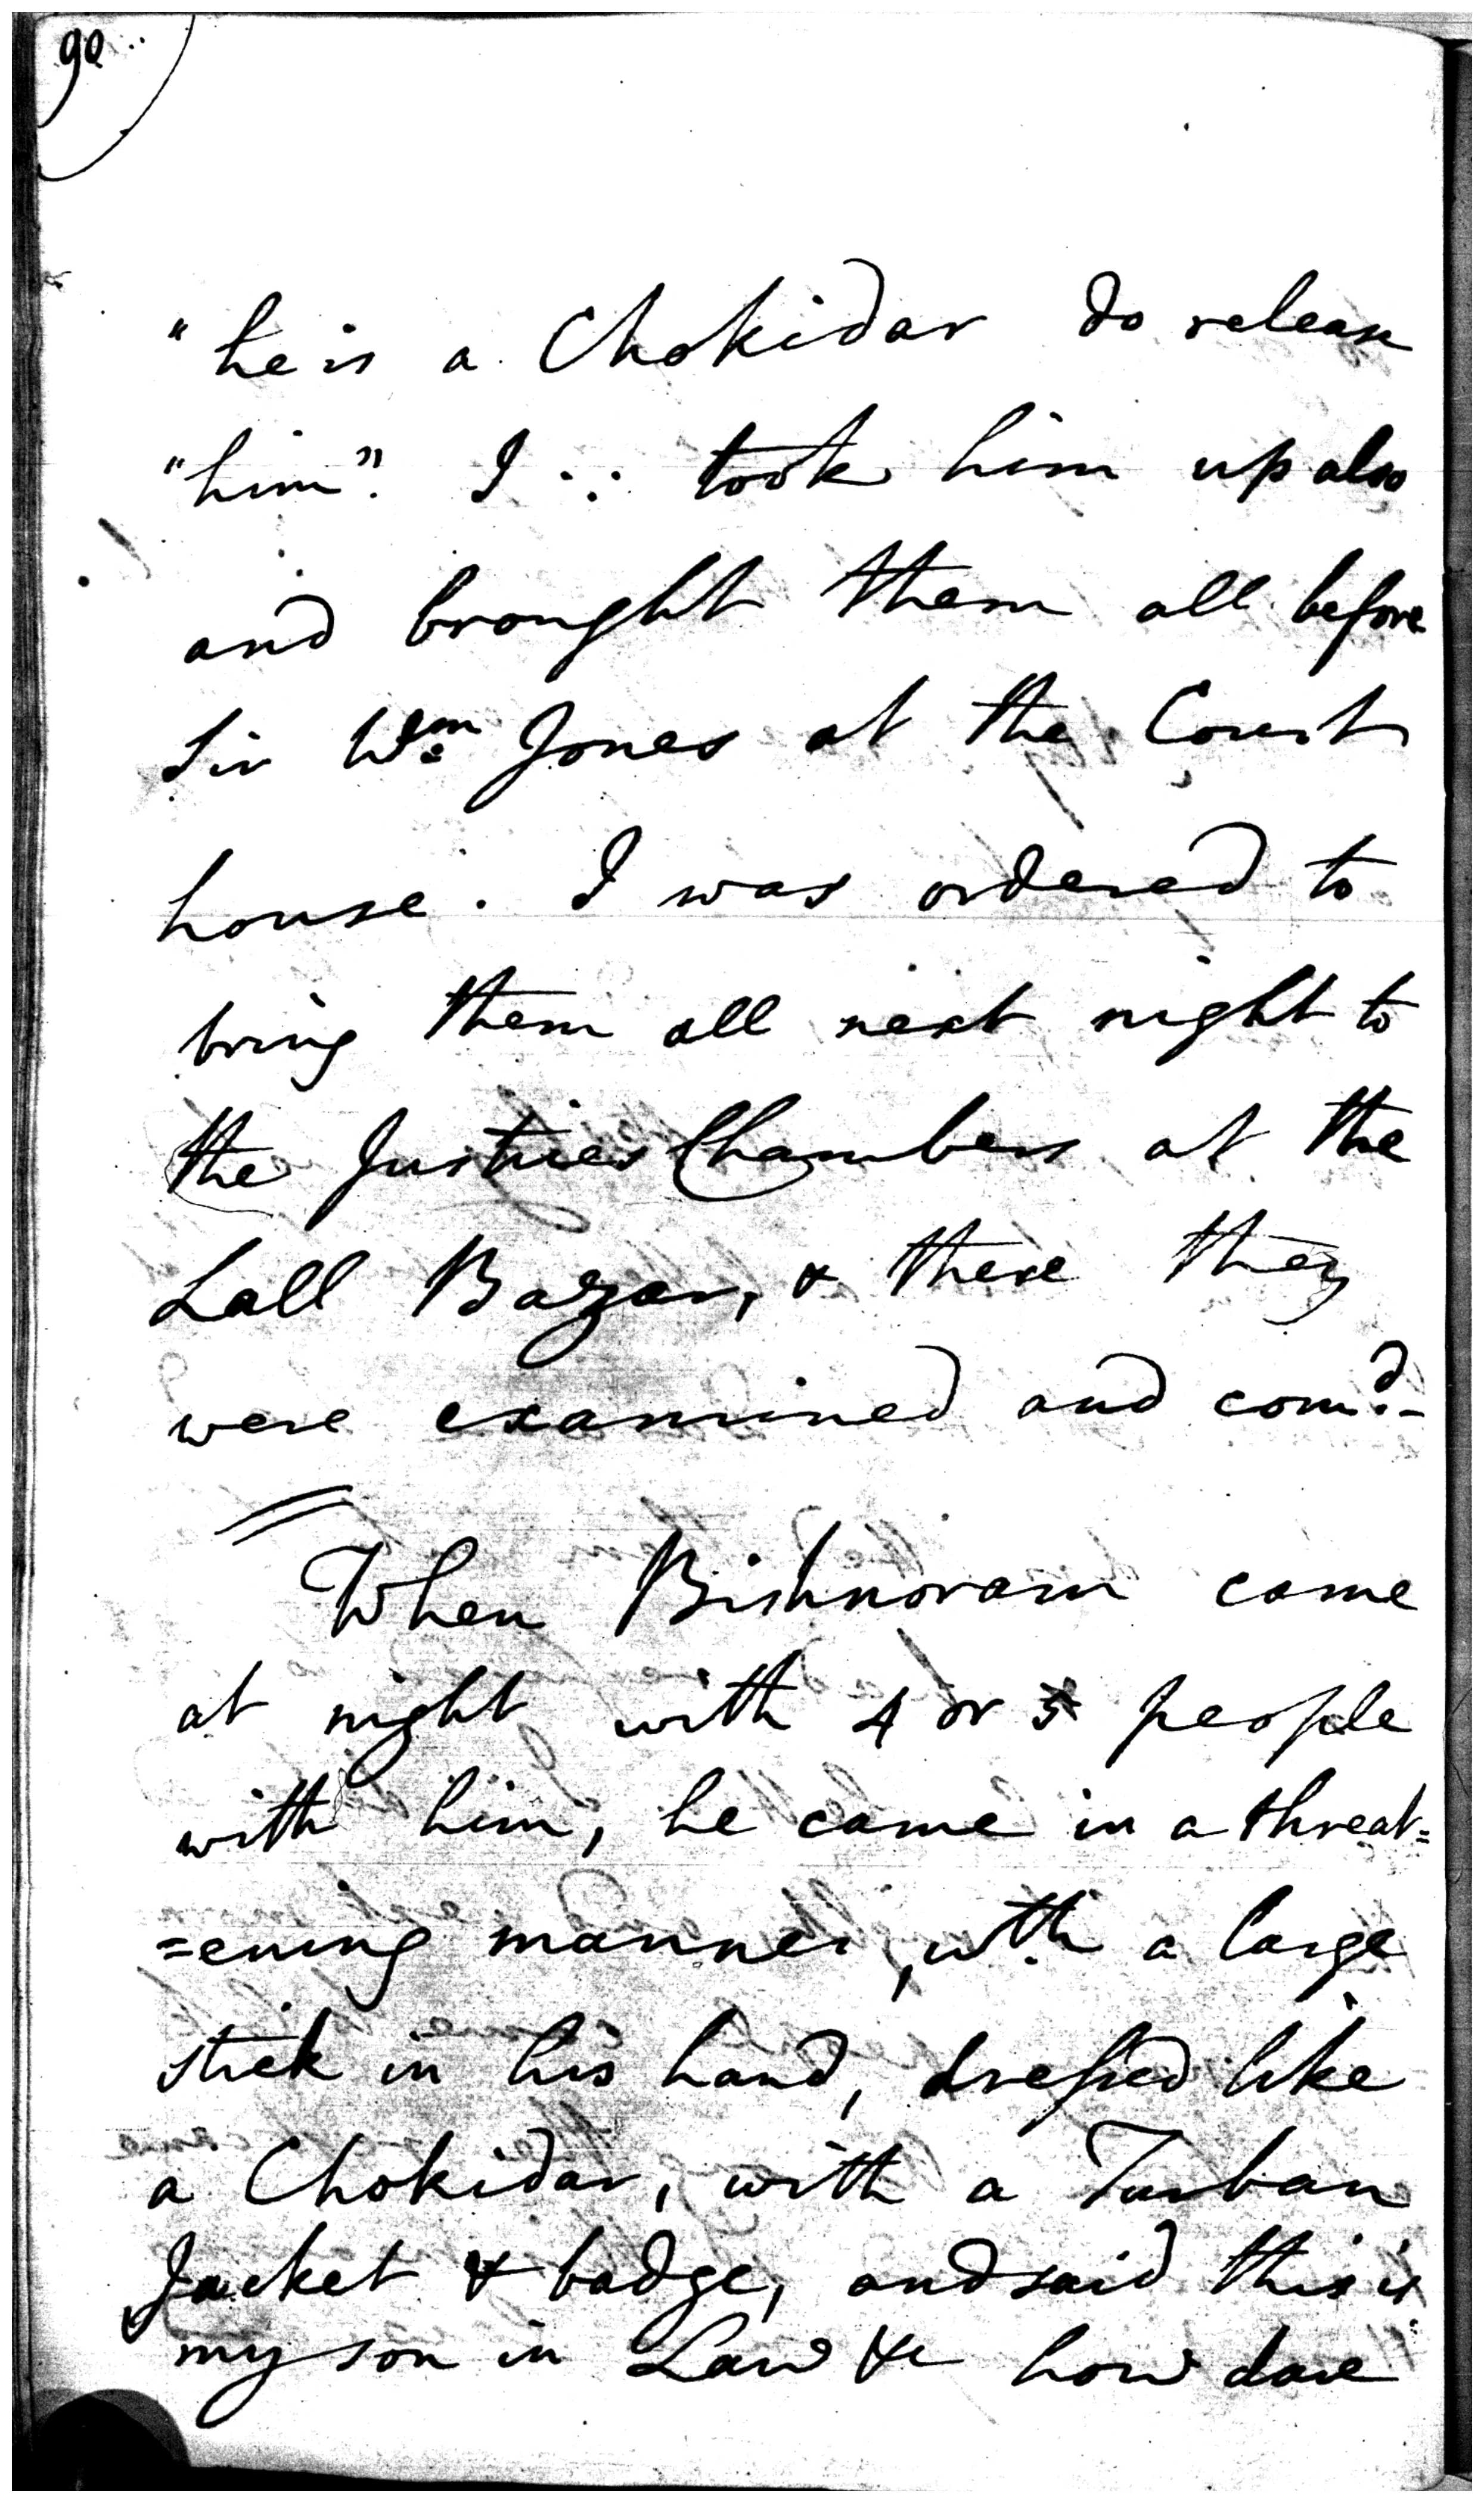 90
"he is a Chokidar do release
"him". I ∵ took him up also
and brought them all before
Sir Wm Jones at the Court
house. I was ordered to
bring them all next night to
the Justices Chambers at the
Lall Bazar, & there they
were examined and comd.-
When Bishnoram came
at night with 4 or 5 people
with him, he came in a threat=
=ening manner, wth a large
stick in his hand, dressed like
a Chokidar, with a Turban
Jacket & badge, and said this is
my son in Law &c how dare